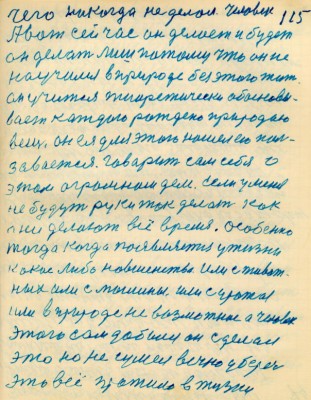 чего никогда не делал. Человек 115
А вот сей час он делает и будет
он делать лиш потому что он не
научился в природе без этого жит.
он учится теоретически обосновы-
вает каждого рождено природою
вещ. он ея для этого нашел ею пол-
зовается. Гаварит сам себя о
этом огромном деле. если у меня
не будут руки так делат как
они делают всё время. особенно
тогда когда появляется у жизни
какое либо новшенства или с живот-
ных или с машины или с урожая
или в природе не возможные а человек
этого сам добился он сделал
это но не сумел вечно уберечь
это всё тратило в жизни